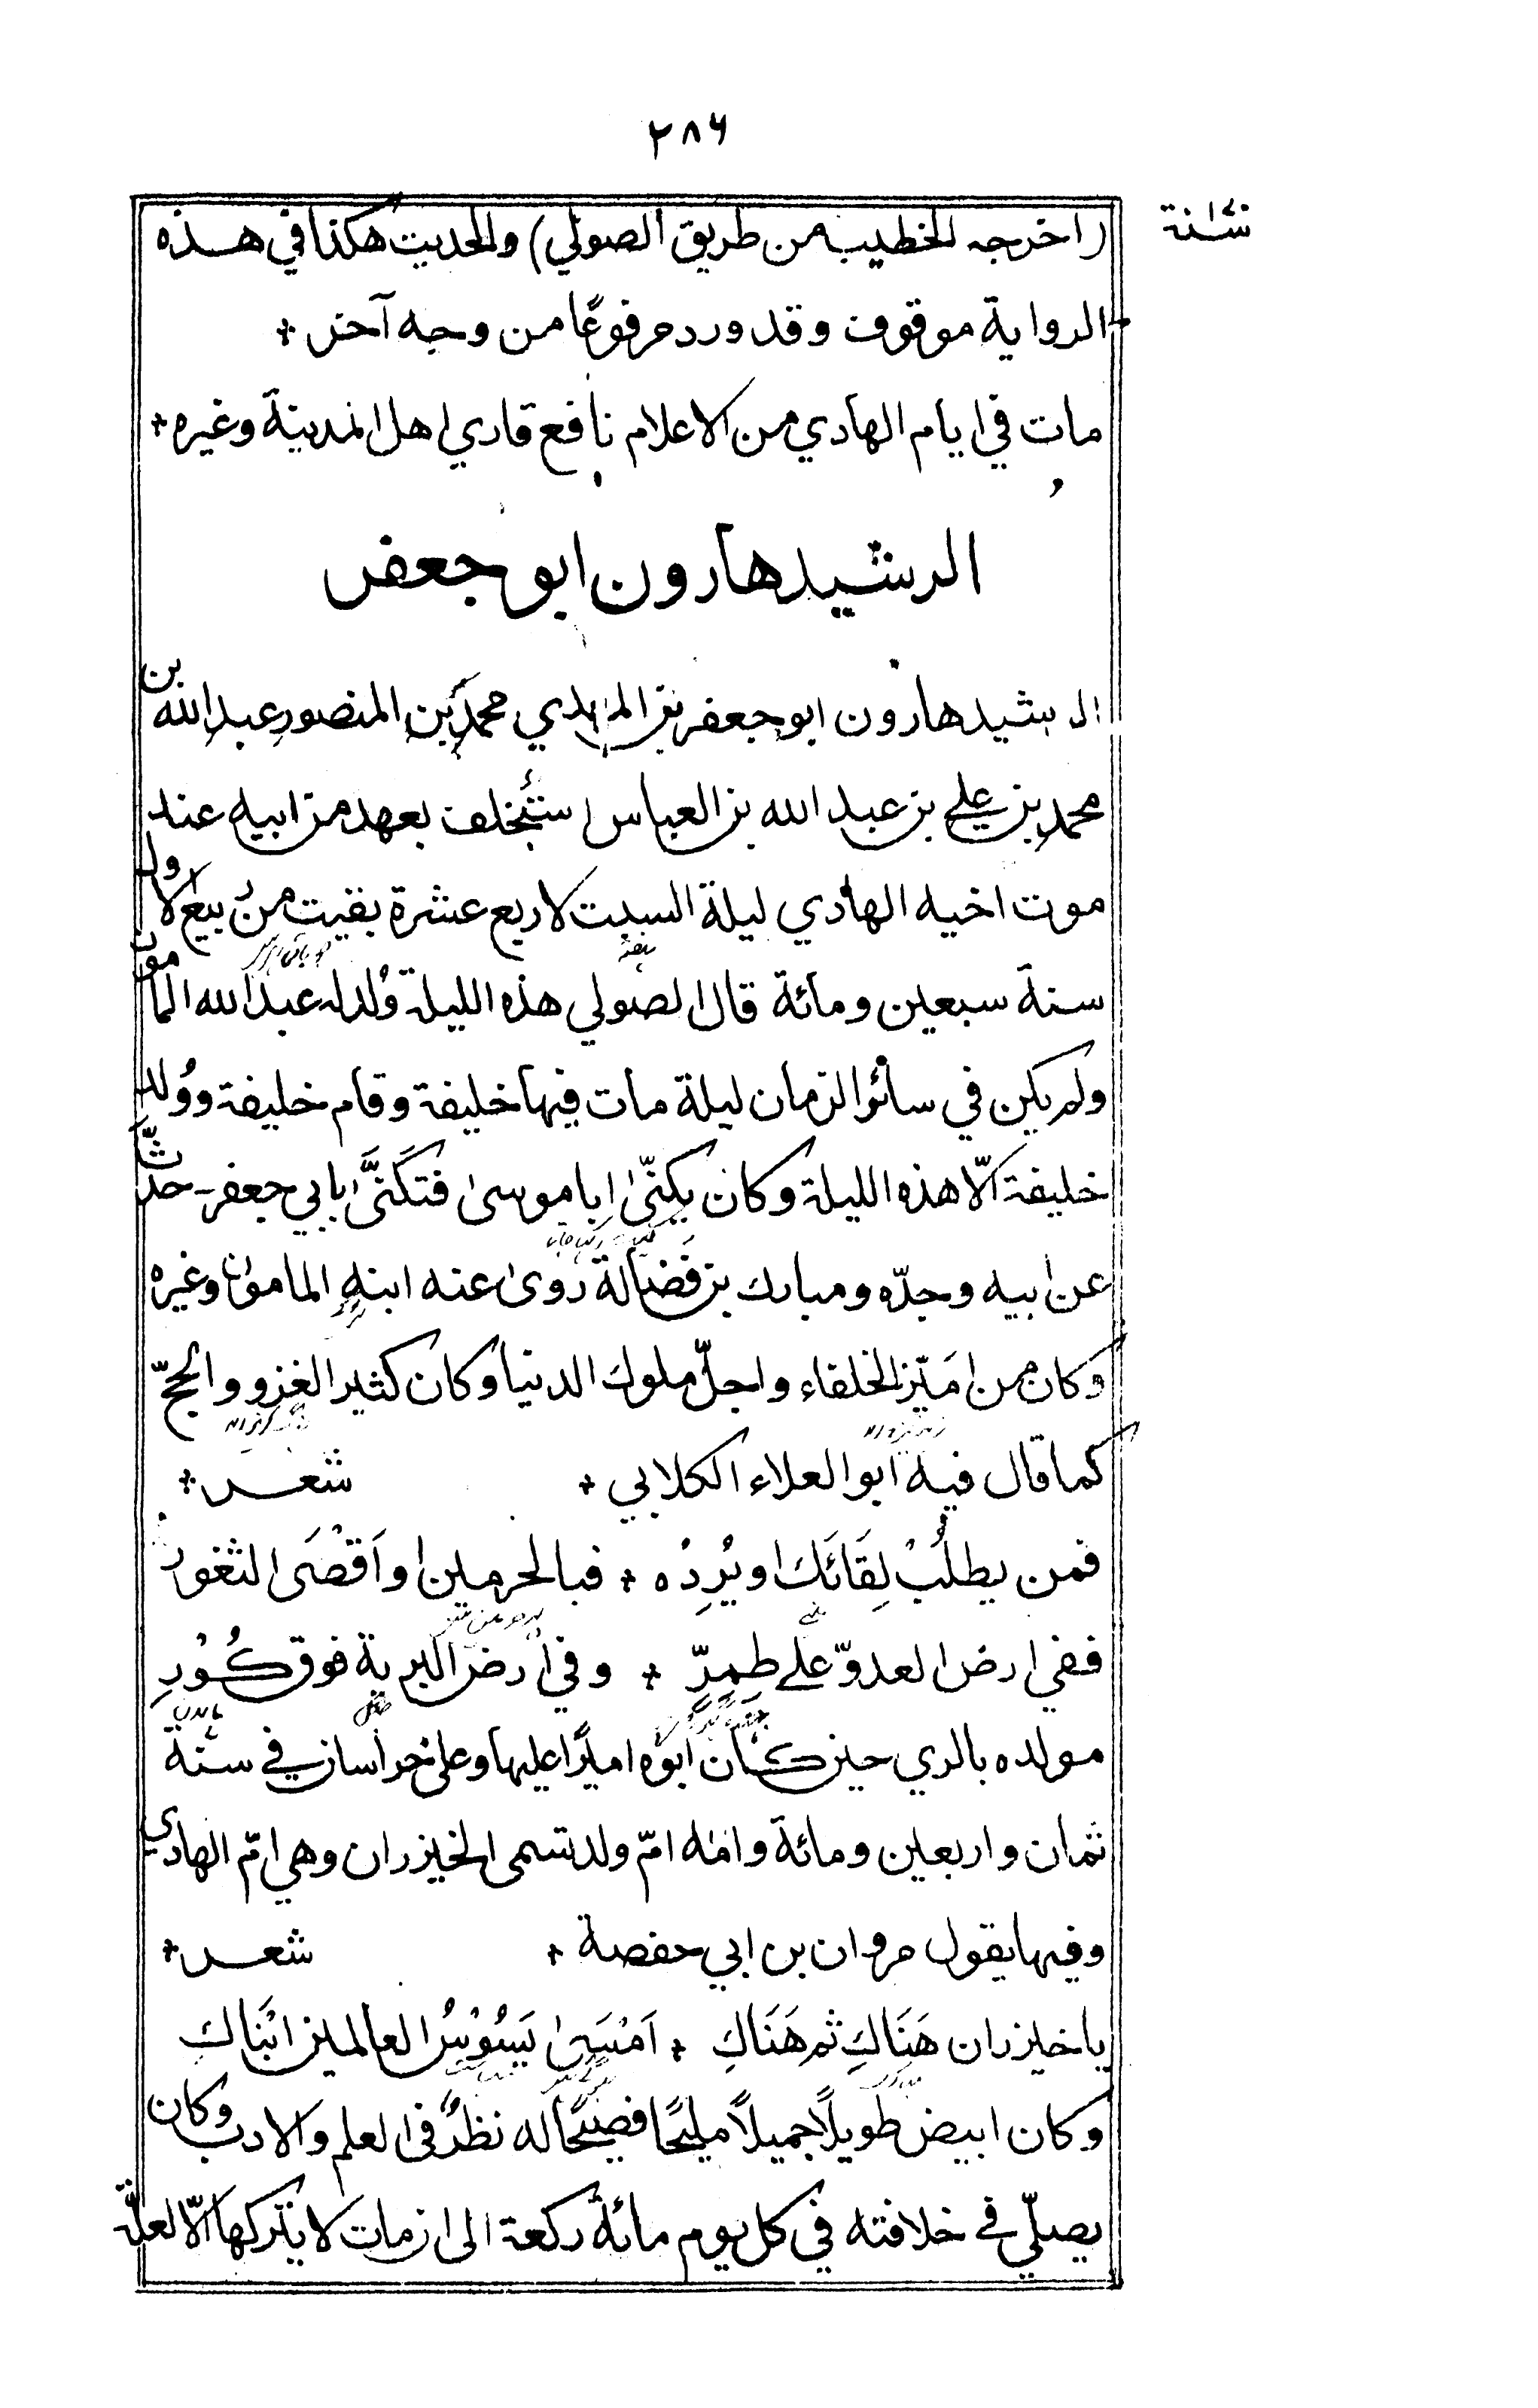 ٢٨٦
(اخرجه الخطيب من طريق الصولي) والحديث هكذا في هذه
الرواية موقوف وقد ورد مرفوعًا من وجه آخر *
مات في ايام الهادي من الاعلام نافع قاري اهل المدينة وغيره *
الرشيد هارون ابو جعفر
الرشيد هارون ابو جعفر بن المهدي محمد بن المنصور عبد الله بن
محمد بن علي بن عبد الله بن العباس استُخلف بعهد من ابيه عند
موت اخيه الهادي ليلة السبت لاربع عشرة بقيت من ربيع الاول
سنة سبعين ومائة قال الصولي هذه الليلة وُلد له عبد الله المامون
ولم يكن في سائر الزمان ليلة مات فيها خليفة وقام خليفة ووُلد
خليفة الّا هذه الليلة وكان يكنّى ابا موسى فتَكَنَّى بابي جعفر - حدّث
عن ابيه وجدّه ومبارك بن فَضالة روى عنه ابنه المامون وغيره
وكان من امَيَز الخلفاء واجلّ ملوك الدنيا وكان كثير الغزو والحجّ
كما قال فيه ابو العلاء الكلابي * شعر *
فمن يطلُبْ لِقَائَكَ او يُرِدْه * فبالحرمين او اَقْصَى الثغور
ففي ارض العدوّ على طِمِرٍّ * وفي ارض البرية فوق كُوْرِ
مولده بالري حين كان ابوه اميرًا عليها وعلى خراسان في سنة
ثمان واربعين ومائة وامّه امّ ولد تسمى الخيزران وهي امّ الهادي
وفيها يقول مروان بن ابي حفصة * شعر *
يا خيزران هَنَاكِ ثم هَنَاكِ * اَمْسَى يَسُوْسُ العالمين ابْنَاكِ
وكان ابيض طويلًا جميلًا مليحًا فصيحًا له نظرٌ في العلم والادب وكان
يصلّي في خلافته في كل يوم مائة ركعة الى ان مات لا يتركها الّا لعلّة